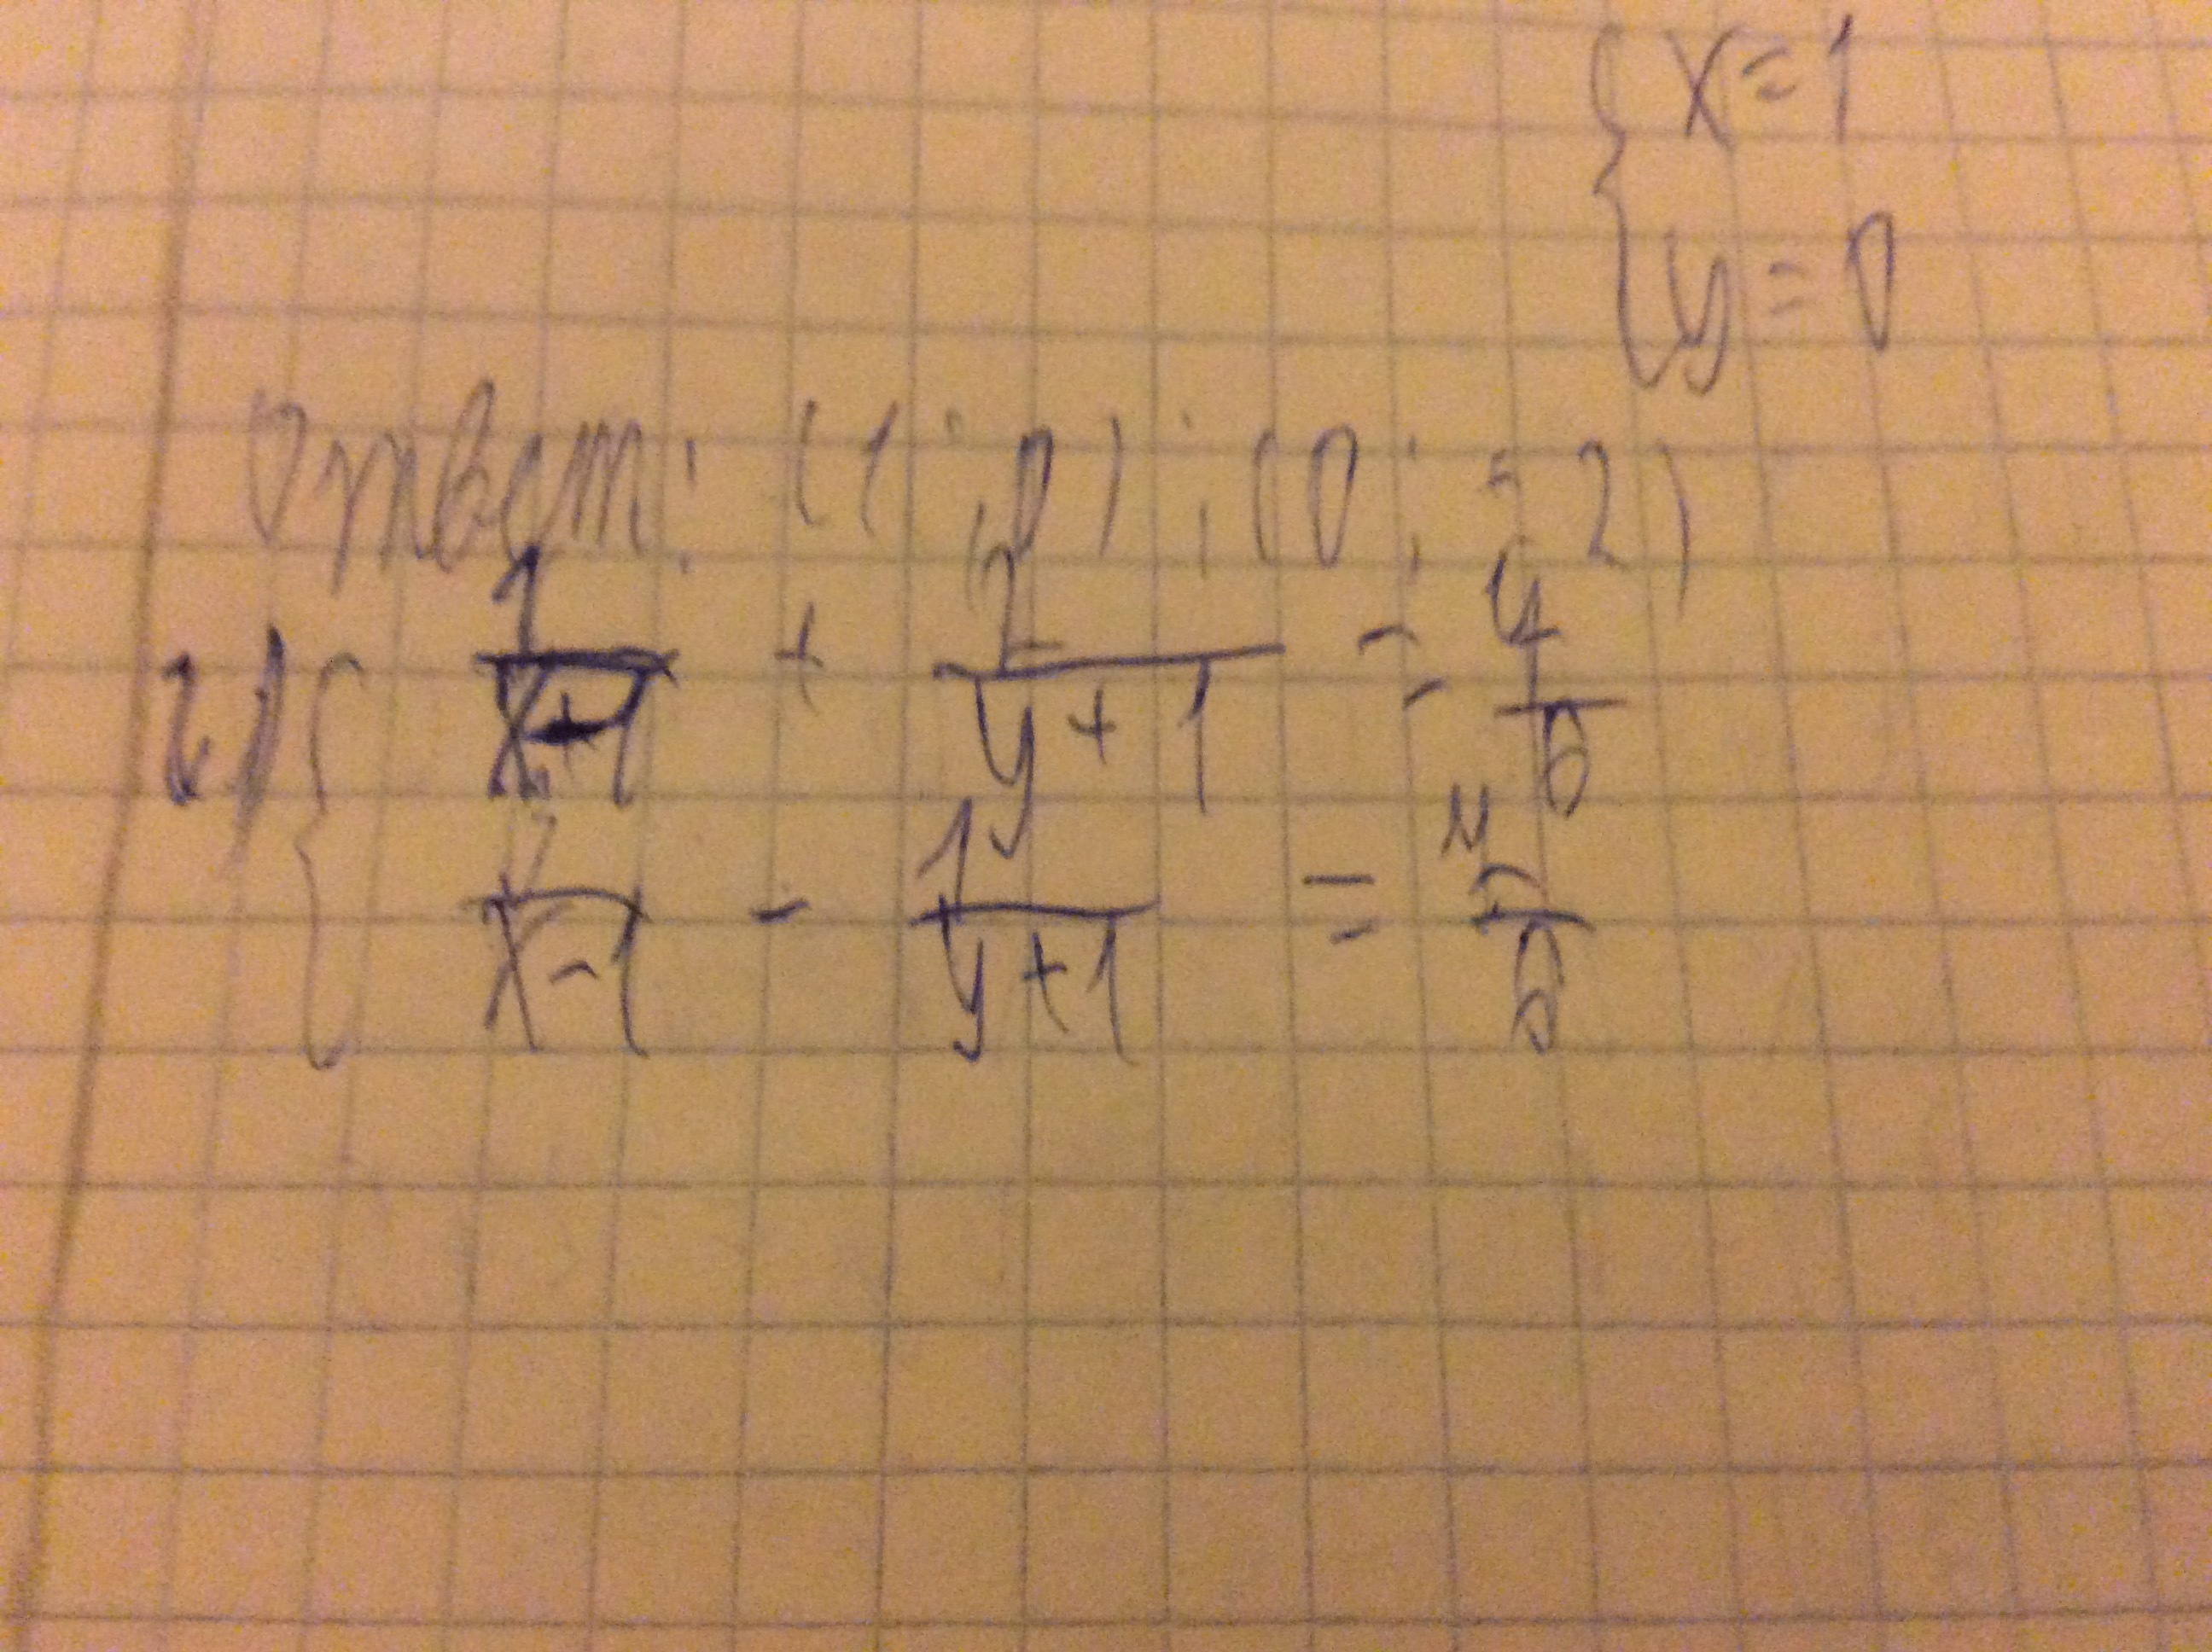 { x = 1
y = 0
Ответ: (1; 0); (0; -2)
2) { 1/(x-1) + 2/(y+1) = 4/5
/(x-1) - 1/(y+1) = /5